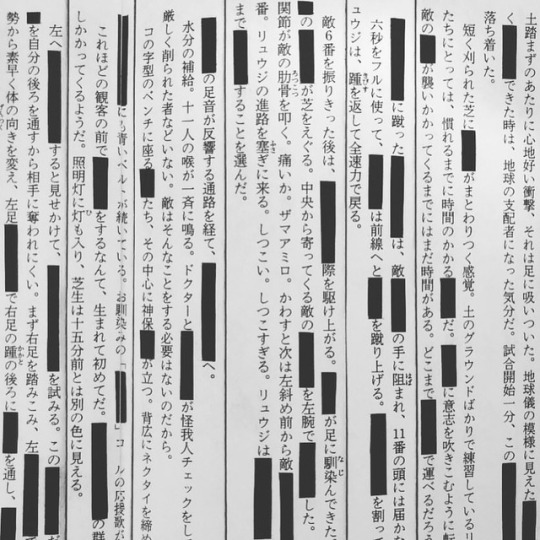 土踏まずのあたりに心地好い衝撃、それは足に吸いついた。地球儀の模様に見えた
く　できた時は、地球の支配者になった気分だ。試合開始一分、この
落ち着いた。
短く刈られた芝に　がまとわりつく感覚。土のグラウンドばかりで練習しているリ
たちにとっては、慣れるまでに時間のかかる　だ。　に意志を吹きこむように転
敵の　が襲いかかってくるまでにはまだ時間がある。どこまで　で運べるだろう
に蹴った　は、敵　の手に阻まれ、11番の頭には届かな
六秒をフルに使って、　は前線へと　を蹴り上げる。　を割って
ュウジは、踵を返して全速力で戻る。
敵6番を振りきった後は、　際を駆け上がる。　が足に馴染んできた。
の　が芝をえぐる。中央から寄ってくる敵の　を左腕で　した。
関節が敵の肋骨を叩く。痛いか。ザマアミロ。かわすと次は左斜め前から敵
番。リュウジの進路を塞ぎに来る。しつこい。しつこすぎる。リュウジは
まで　することを選んだ。
の足音が反響する通路を経て、　へ。
水分の補給。十一人の喉が一斉に鳴る。ドクターと　が怪我人チェックをし
厳しく削られた者などいない。敵はそんなことをする必要はないのだから。
コの字型のベンチに座る　たち、その中心に神保　が立つ。背広にネクタイを締め
にも青いベルトが続いている。お馴染みの「　」コールの応援歌が
これほどの観客の前で　をするなんて、生まれて初めてだ。　の群
しかかってくるようだ。照明灯に灯も入り、芝生は十五分前とは別の色に見える。
左へ　すると見せかけて、　を試みる。この　だ
を自分の後ろを通すから相手に奪われにくい。まず右足を踏みこみ、左
勢から素早く体の向きを変え、左足　で右足の踵の後ろに　を通し、